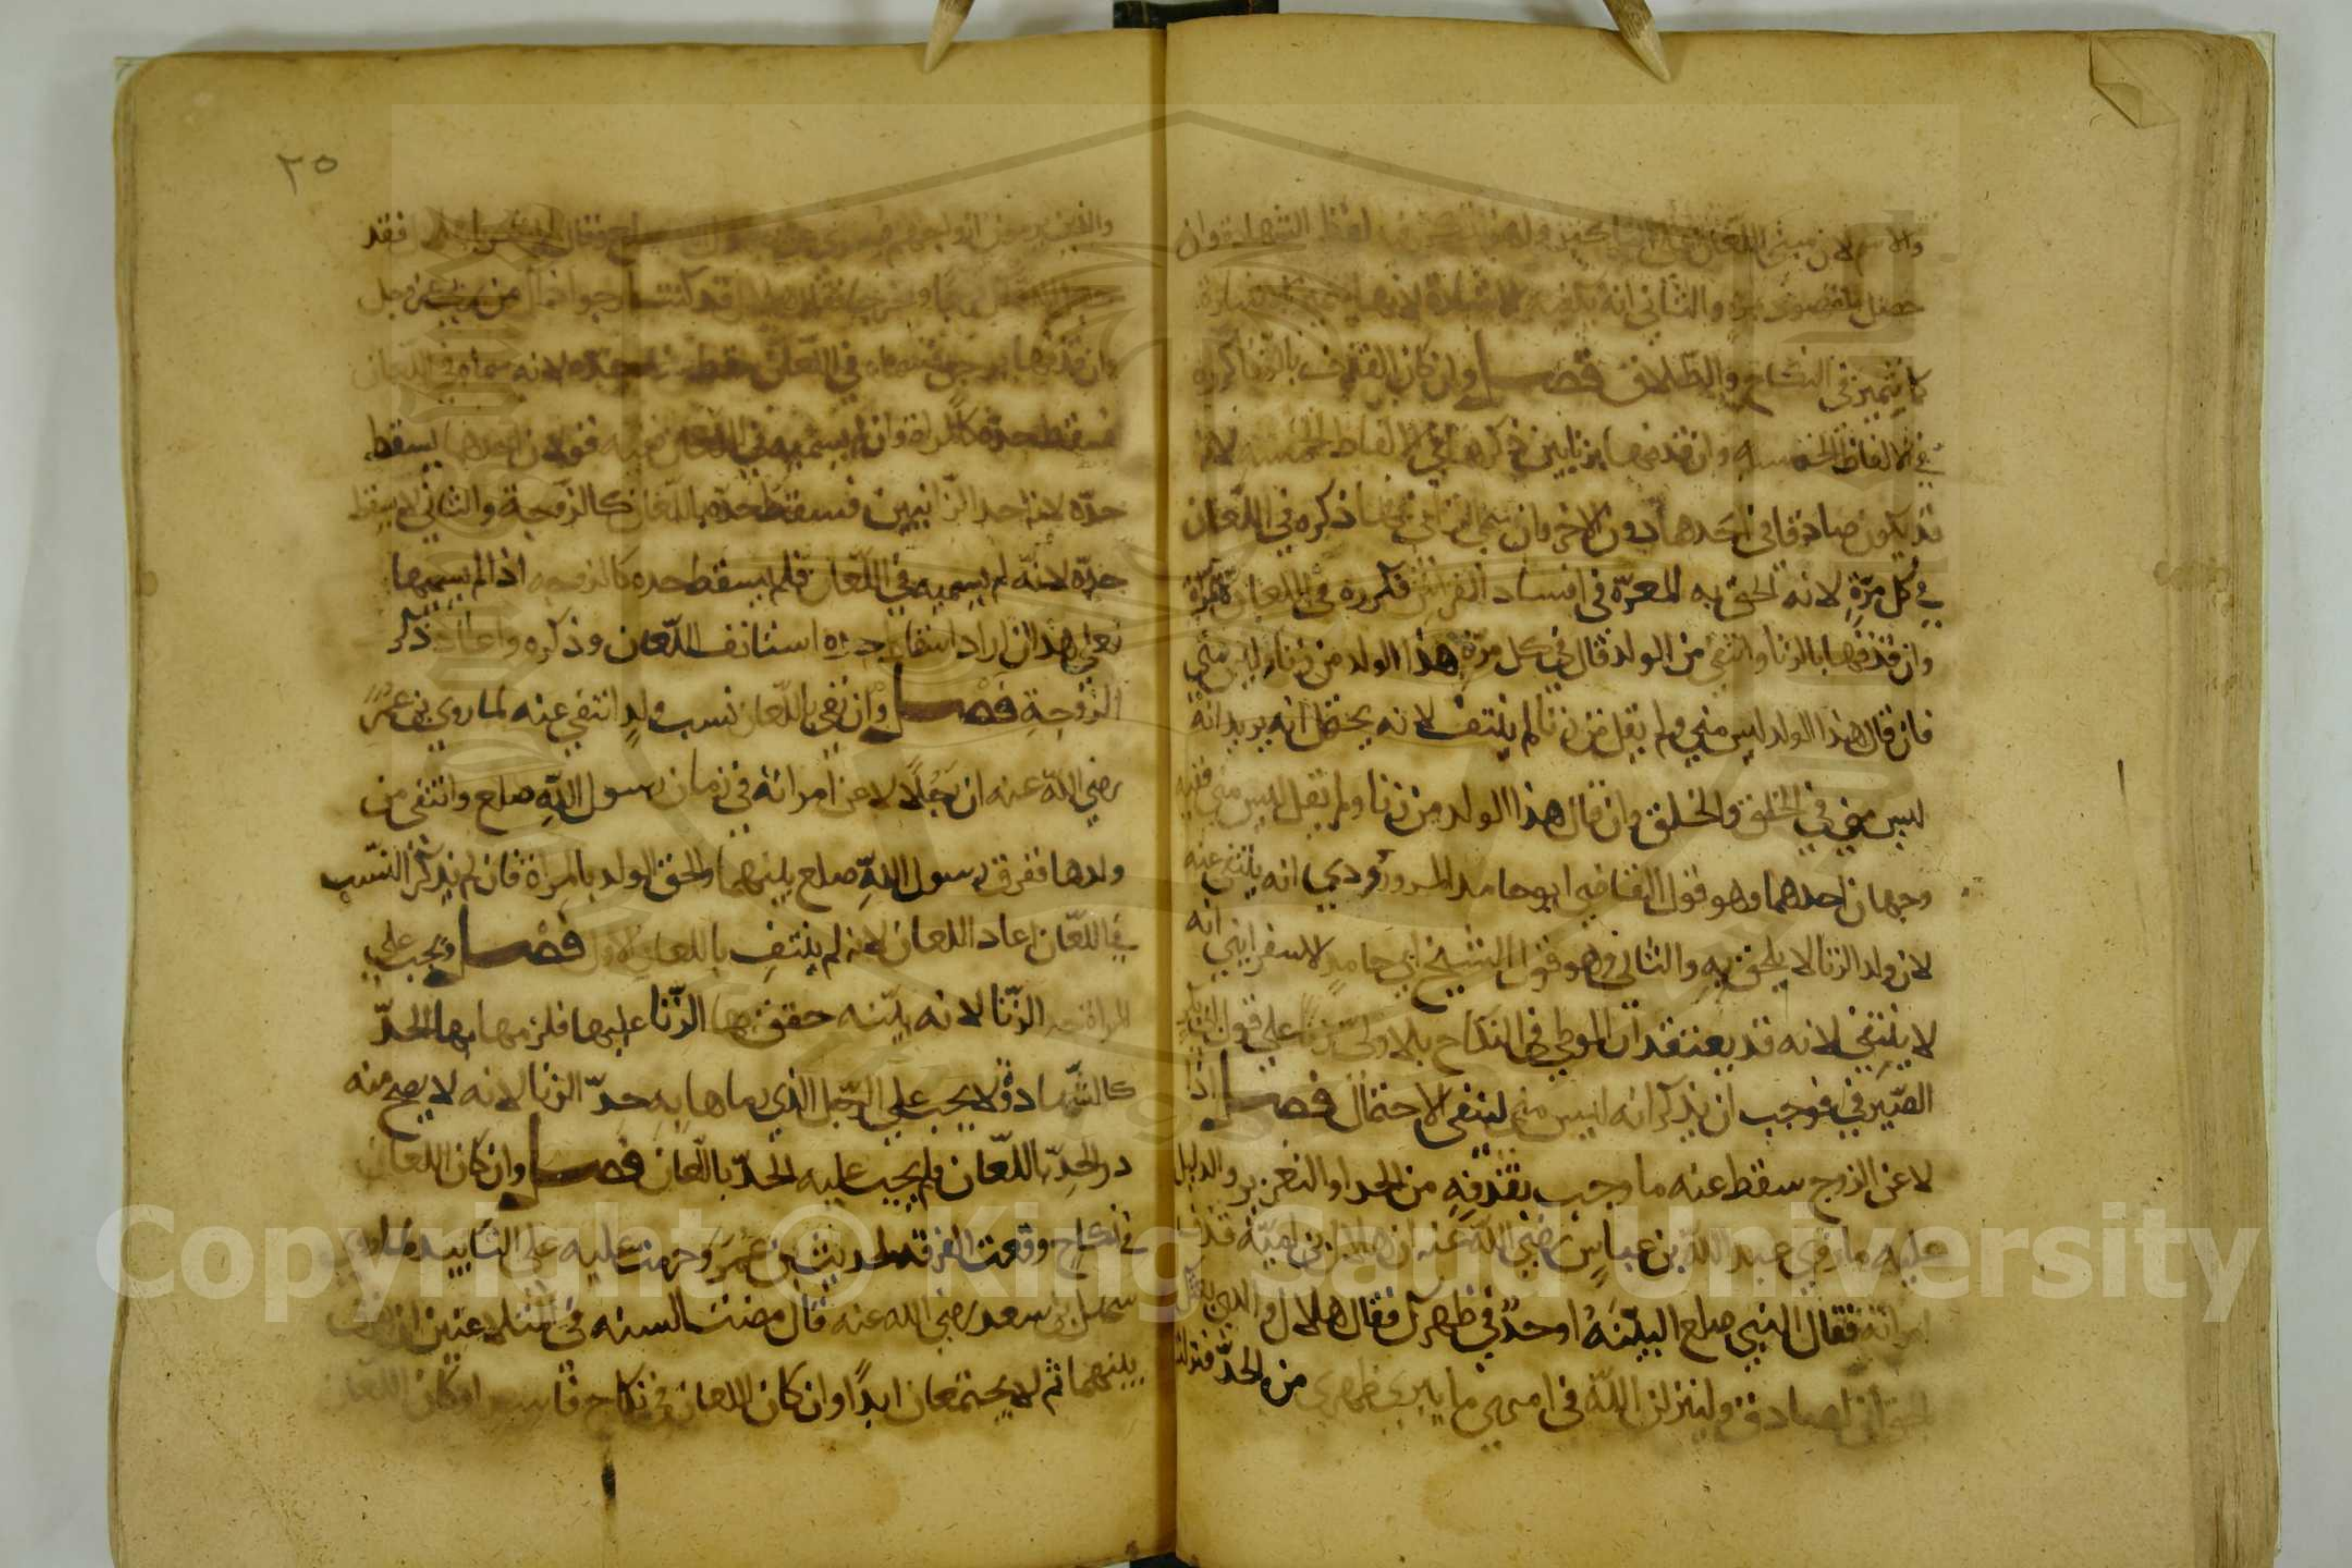 والاسم لان مبنى اللعان على التاكيد ولهذا لفظ الشهادة وان
حصل المقصود والثاني انه لانها
كالتمييز في النكاح والطلاق فصل وان كان القذف بالزنا كرره
في الالفاظ الخمسه وان قذفها بزنايين ذكرهما في الالفاظ الخمسه لانه
قد يكون صادقا في احدهما دون الاخر فان سمى الزاني في ذكره في اللعان
في كل مرّة لانه الحق به المعرّة في افساد الفراش فكرره في اللعان
وان قذفها بالزنا وانتفى من الولد قال في كل مرّة هذا الولد من زنا وليس مني
فان قال هذا الولد ليس مني ولم يقل من زنا لم ينتف لانه يحتمل انه يريد انه
ليس مني في الخلق والخلق وان قال هذا الولد من زنا ولم يقل ليس مني ففيه
وجهان احدهما وهو قول القاضي ابو حامد المروروذي انه ينتفي عنه
لان ولد الزنا لا يلحق به والثاني وهو قول الشيخ ابي حامد الاسفرايني انه
لا ينتفي لانه قد يعتقد ان الوطي في النكاح بلا ولي زنا على قول ابي بكر
الصّيرفي فوجب ان يذكر انه ليس مني لينتفي الاحتمال فصل اذا
لاعن الزوج سقط عنه ما وجب بقذفه من الحد او التعزير والدليل
عليه ما روي عبد الله بن عباس رضي الله عنه ان هلال بن اميّة قذف
امراته فقال النبي صلعم البيّنهُ او حدٌّ في ظهرك فقال هلال والذي بعثك
بالحق اني لصادق ولينزلن الله في امري ما يبري ظهري من الحدّ فنزلت
٣٥
والذين يرمون ازواجهم فقال فقد
فرجا ومخرجا قد كنت ارجوا ذلك من ربي عز وجل
وان قذفها برجل في اللعان سقط حدّه لانه سماه في اللعان
فسقط حدّه كالمراة وان لم يسميه في اللعان ففيه قولان احدهما يسقط
حدّه لانه احد الزانيين فسقط حدّه باللعان كالزوجة والثاني لا يسقط
حدّه لانّه لم يسميه في اللعان فلم يسقط حده كالزوجه اذا لم يسميها
فعلى هذا ان اراد اسقاط حده استانف اللعان وذكره واعاد ذكر
الزوجة فصل وان نفى باللعان نسب ولدٍ انتفى عنه لما روي بن عمر
رضي الله عنه ان رَجُلًا لاعن امراته في زمان رسول اللهِ صلعم وانتفى من
ولدها ففرق رسول اللهِ صلعم بينهما والحق الولد بالمراة فان لم يذكر النسب
في اللعان اعاد اللعان لانه لم ينتفِ باللعان الاول فصل ويجب على
المراة حد الزّنا لانه بيّنه حقق بها الزّنا عليها فلزمها بها الحدّ
كالشهادة ولا يجب على الرجل الذي رماها به حدّ الزنا لانه لا يصح منه
درء الحدّ باللعان فلم يجب عليه الحدّ باللعان فصل وان كان اللعان
في نكاح وقعت الفرقه لحديث بن عمر وحرمت عليه على التابيد لما روي
سهل بن سعد رضي الله عنه قال مضت السنه في المتلاعنين ان يفرق
بينهما ثم لا يجتمعان ابدًا وان كان اللعان في نكاح فاسد او كان اللعان
Copyright © King Saud University